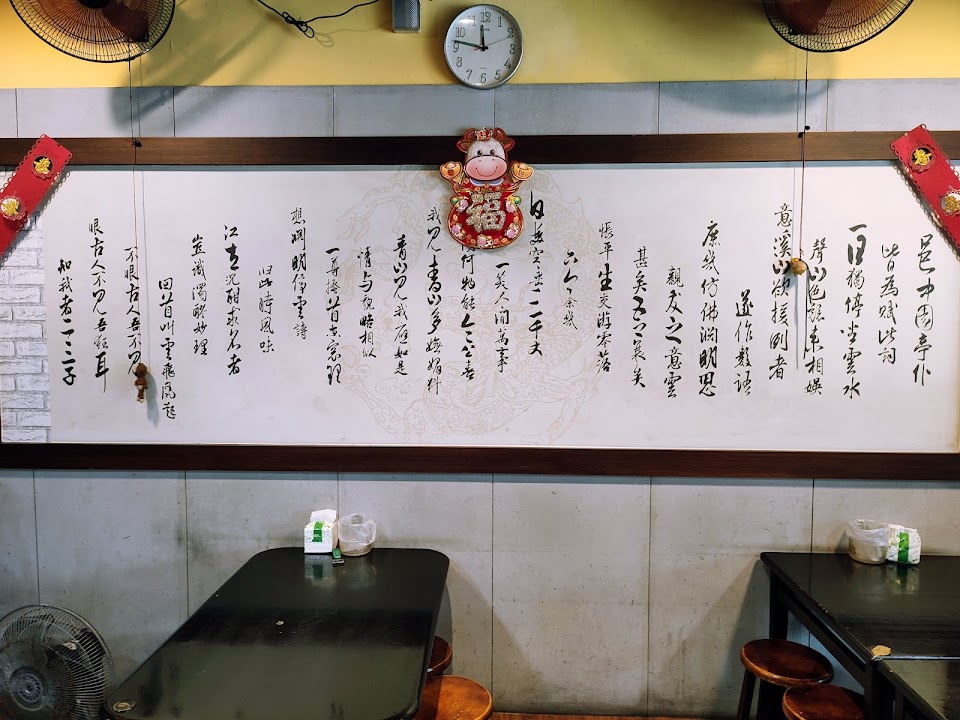 福
邑中園亭仆
皆為賦此詞
一日獨停坐雲水
聲山色競来相娛
意溪山欲援例者
遂作数語
庶幾仿佛淵明思
親友之意雲
甚矣吾衰矣
悵平生交游零落
只今余幾
白髮空垂三千丈
一笑人間萬事
何物能令公喜
我见青山多嫵媚料
青山见我應如是
情与貌略相似
一尊搔首東窗理
想渊明停雲詩
此時風味
江左沉酣求名者
豈識濁醪妙理
回首叫雲飛风起
不恨古人吾不见
恨古人不见吾狂耳
知我者二三子